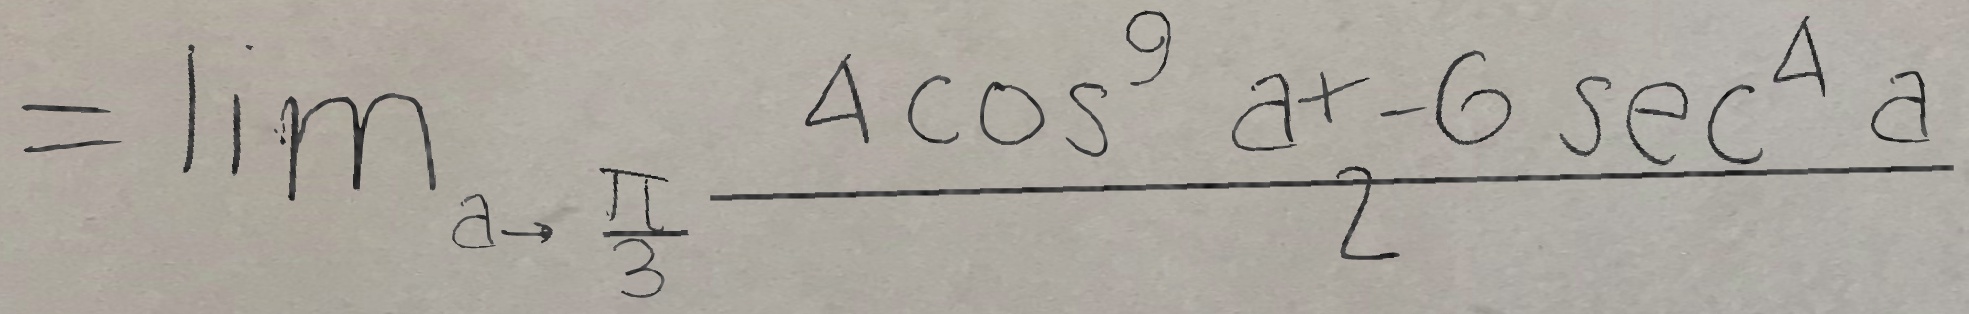 = lim_{a→ \frac{π}{3}} \frac{4 cos^9 a + -6 sec^4 a}{2}